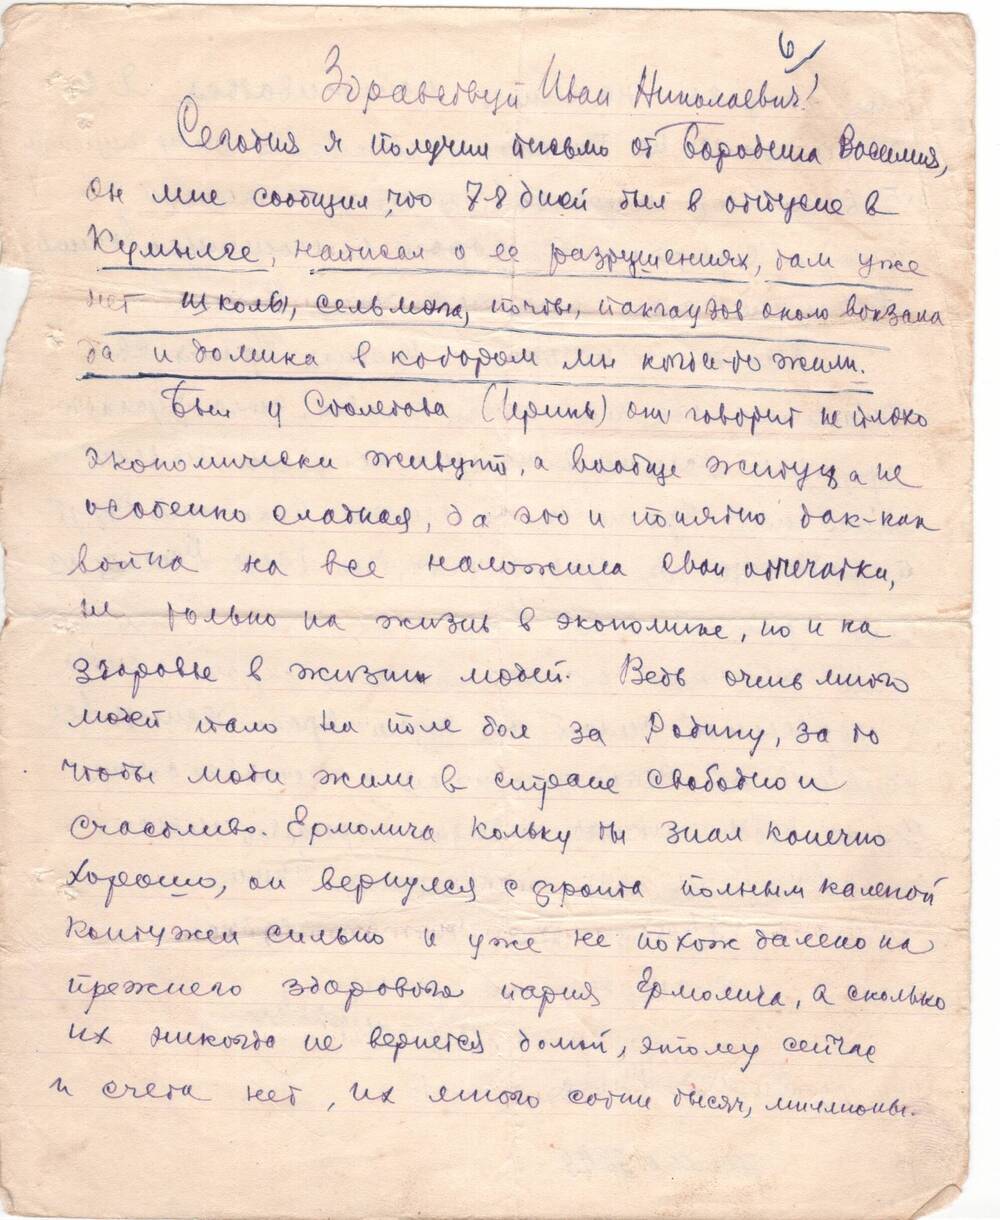 6
Здравствуй Иван Николаевич!
Сегодня я получил письмо от Бородина Василия,
он мне сообщил, что 7-8 дней был в отпуске в
Кумылге, написал о ее разрушениях, там уже
нет школы, сельмага, почты, пакгаузов около вокзала
да и домика в котором мы когда-то жили.
Был у Столетова (Ирины) он говорит не плохо
экономически живут, а вообще жизнь не
особенно славная, да это и понятно так-как
война на все наложила свои отпечатки,
не только на жизнь в экономике, но и на
здоровье в жизни людей. Ведь очень много
людей пало на поле боя за Родину, за то
чтобы люди жили в стране свободно и
счастливо. Ермолича Кольку ты знал конечно
хорошо, он вернулся с фронта полным калекой
контужен сильно и уже не похож далеко на
прежнего здорового парня Ермолича, а сколько
их никогда не вернется домой, этому сейчас
и счета нет, их много сотни тысяч, миллионы.